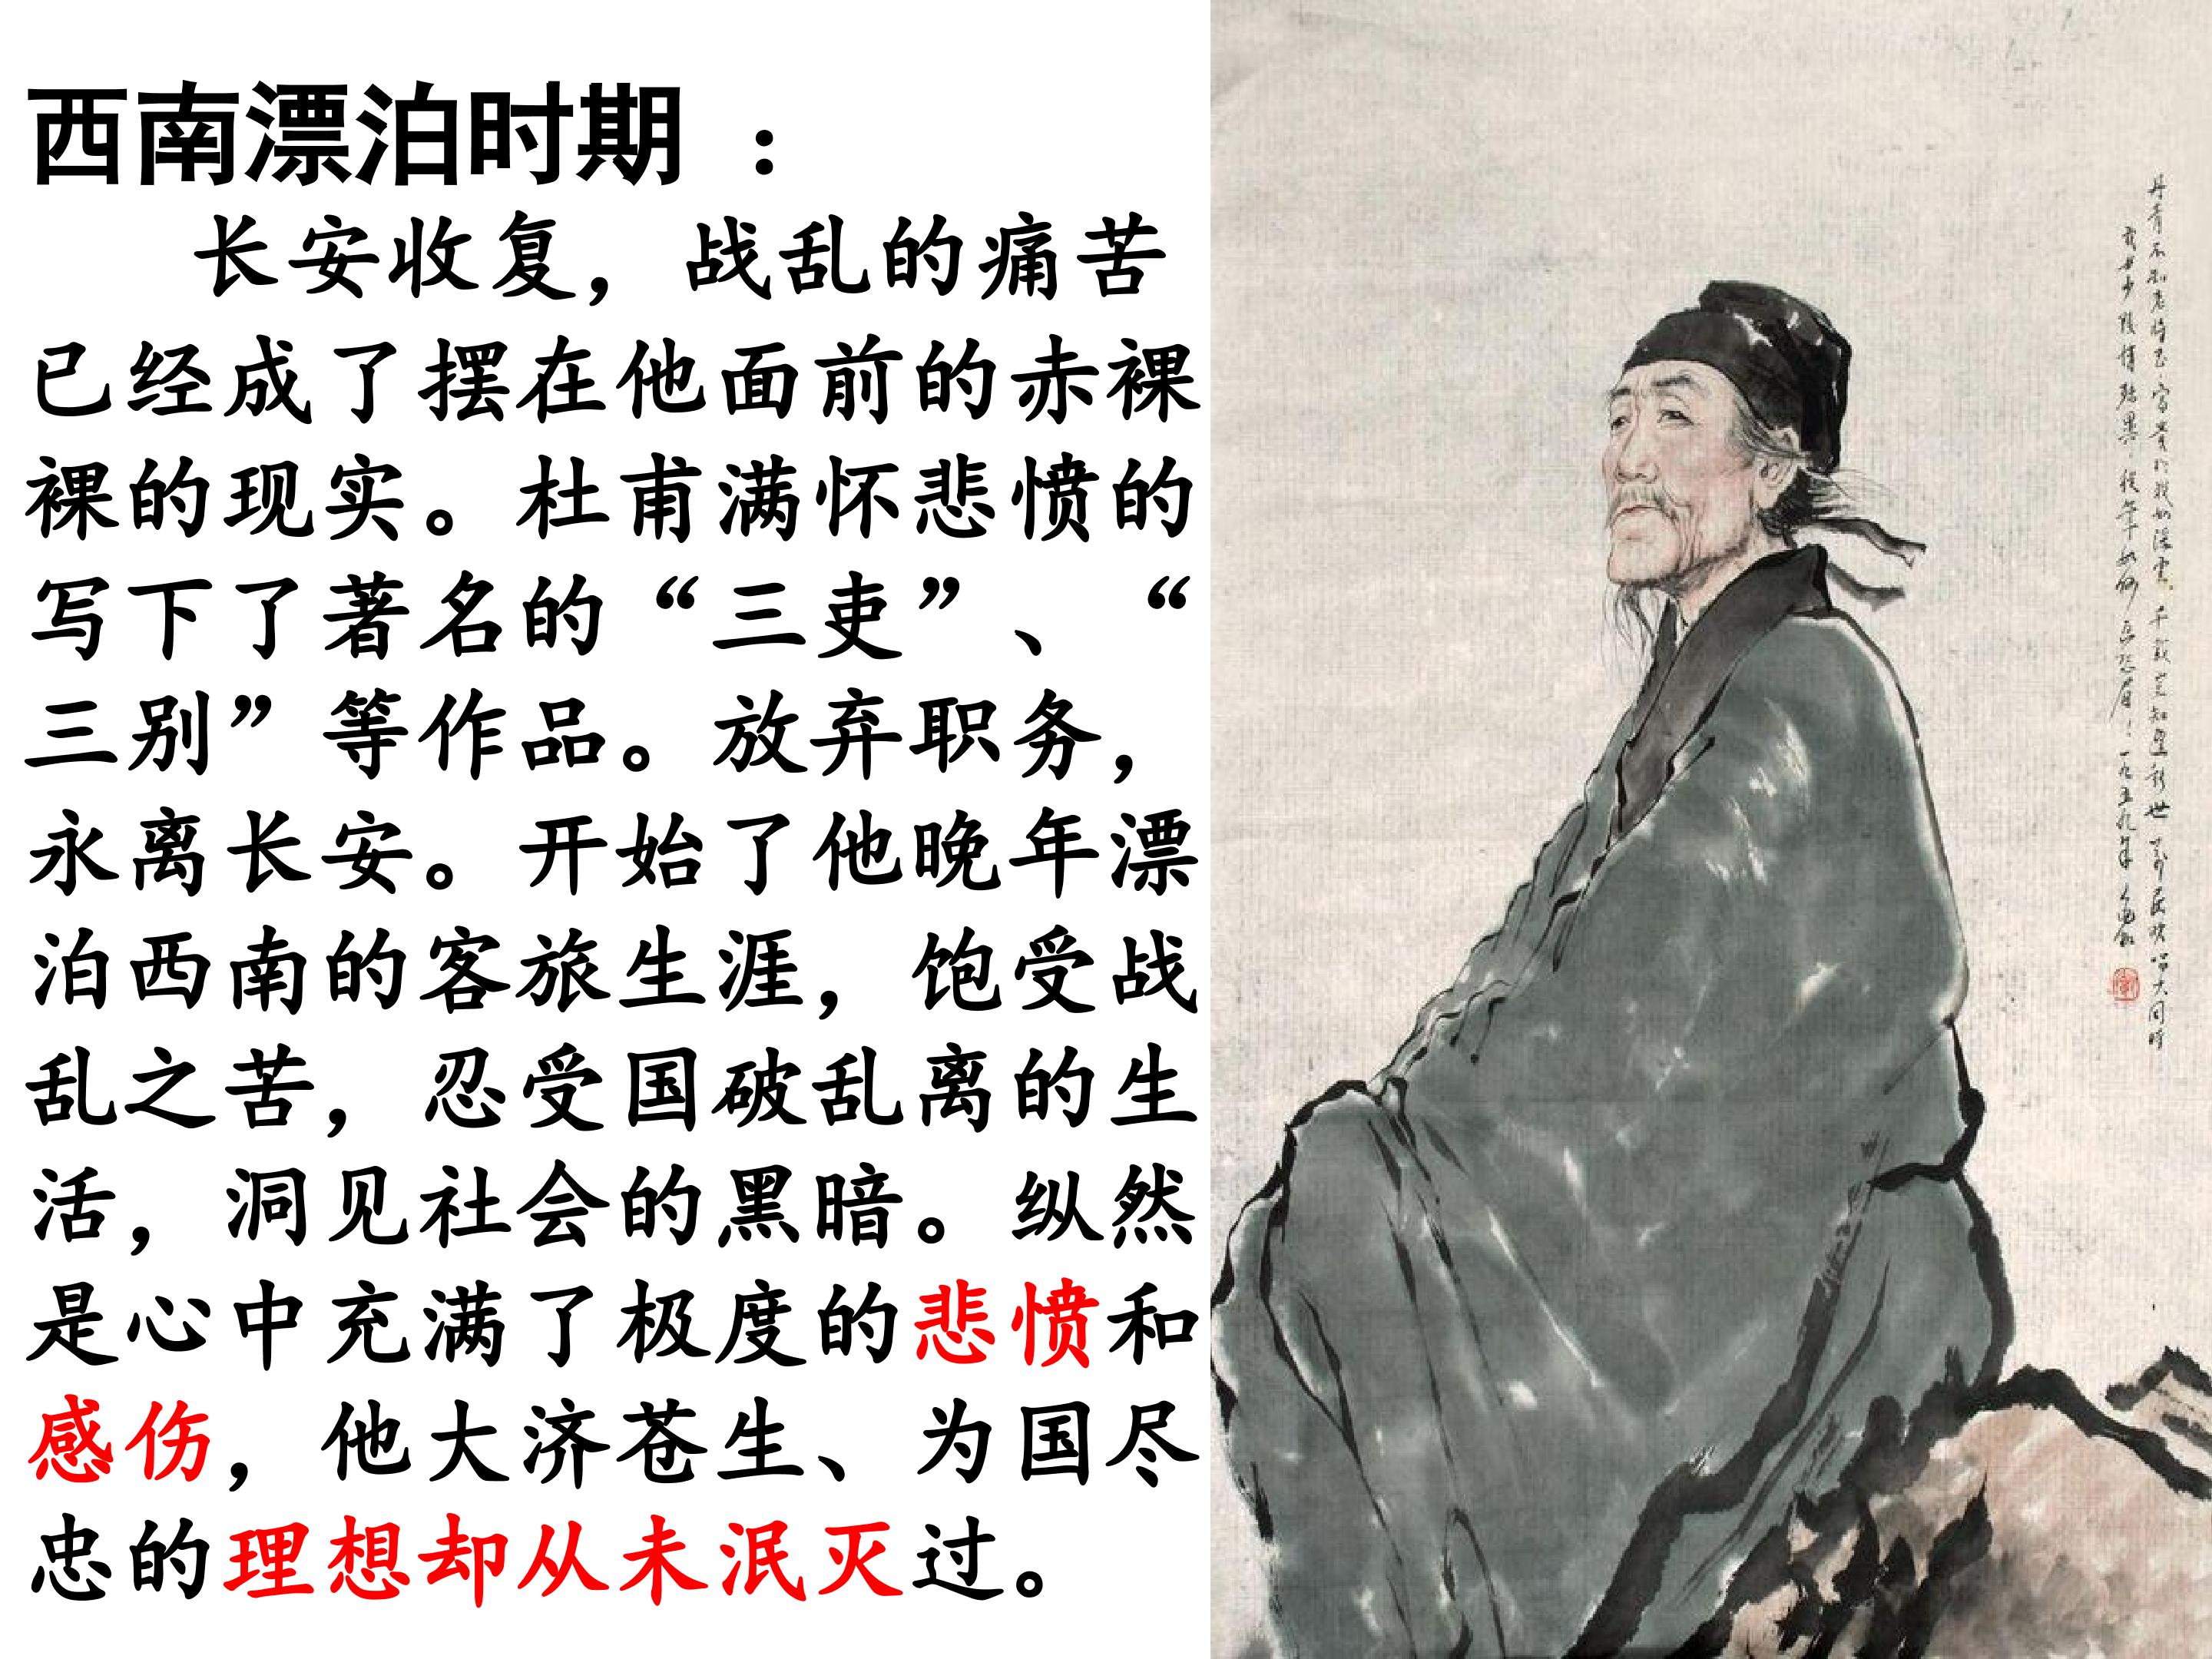 西南漂泊时期 ：
长安收复，战乱的痛苦
已经成了摆在他面前的赤裸
裸的现实。杜甫满怀悲愤的
写下了著名的“三吏”、“
三别”等作品。放弃职务，
永离长安。开始了他晚年漂
泊西南的客旅生涯，饱受战
乱之苦，忍受国破乱离的生
活，洞见社会的黑暗。纵然
是心中充满了极度的悲愤和
感伤，他大济苍生、为国尽
忠的理想却从未泯灭过。
丹青不知老将至富贵於我如浮雲千載
一九五九年